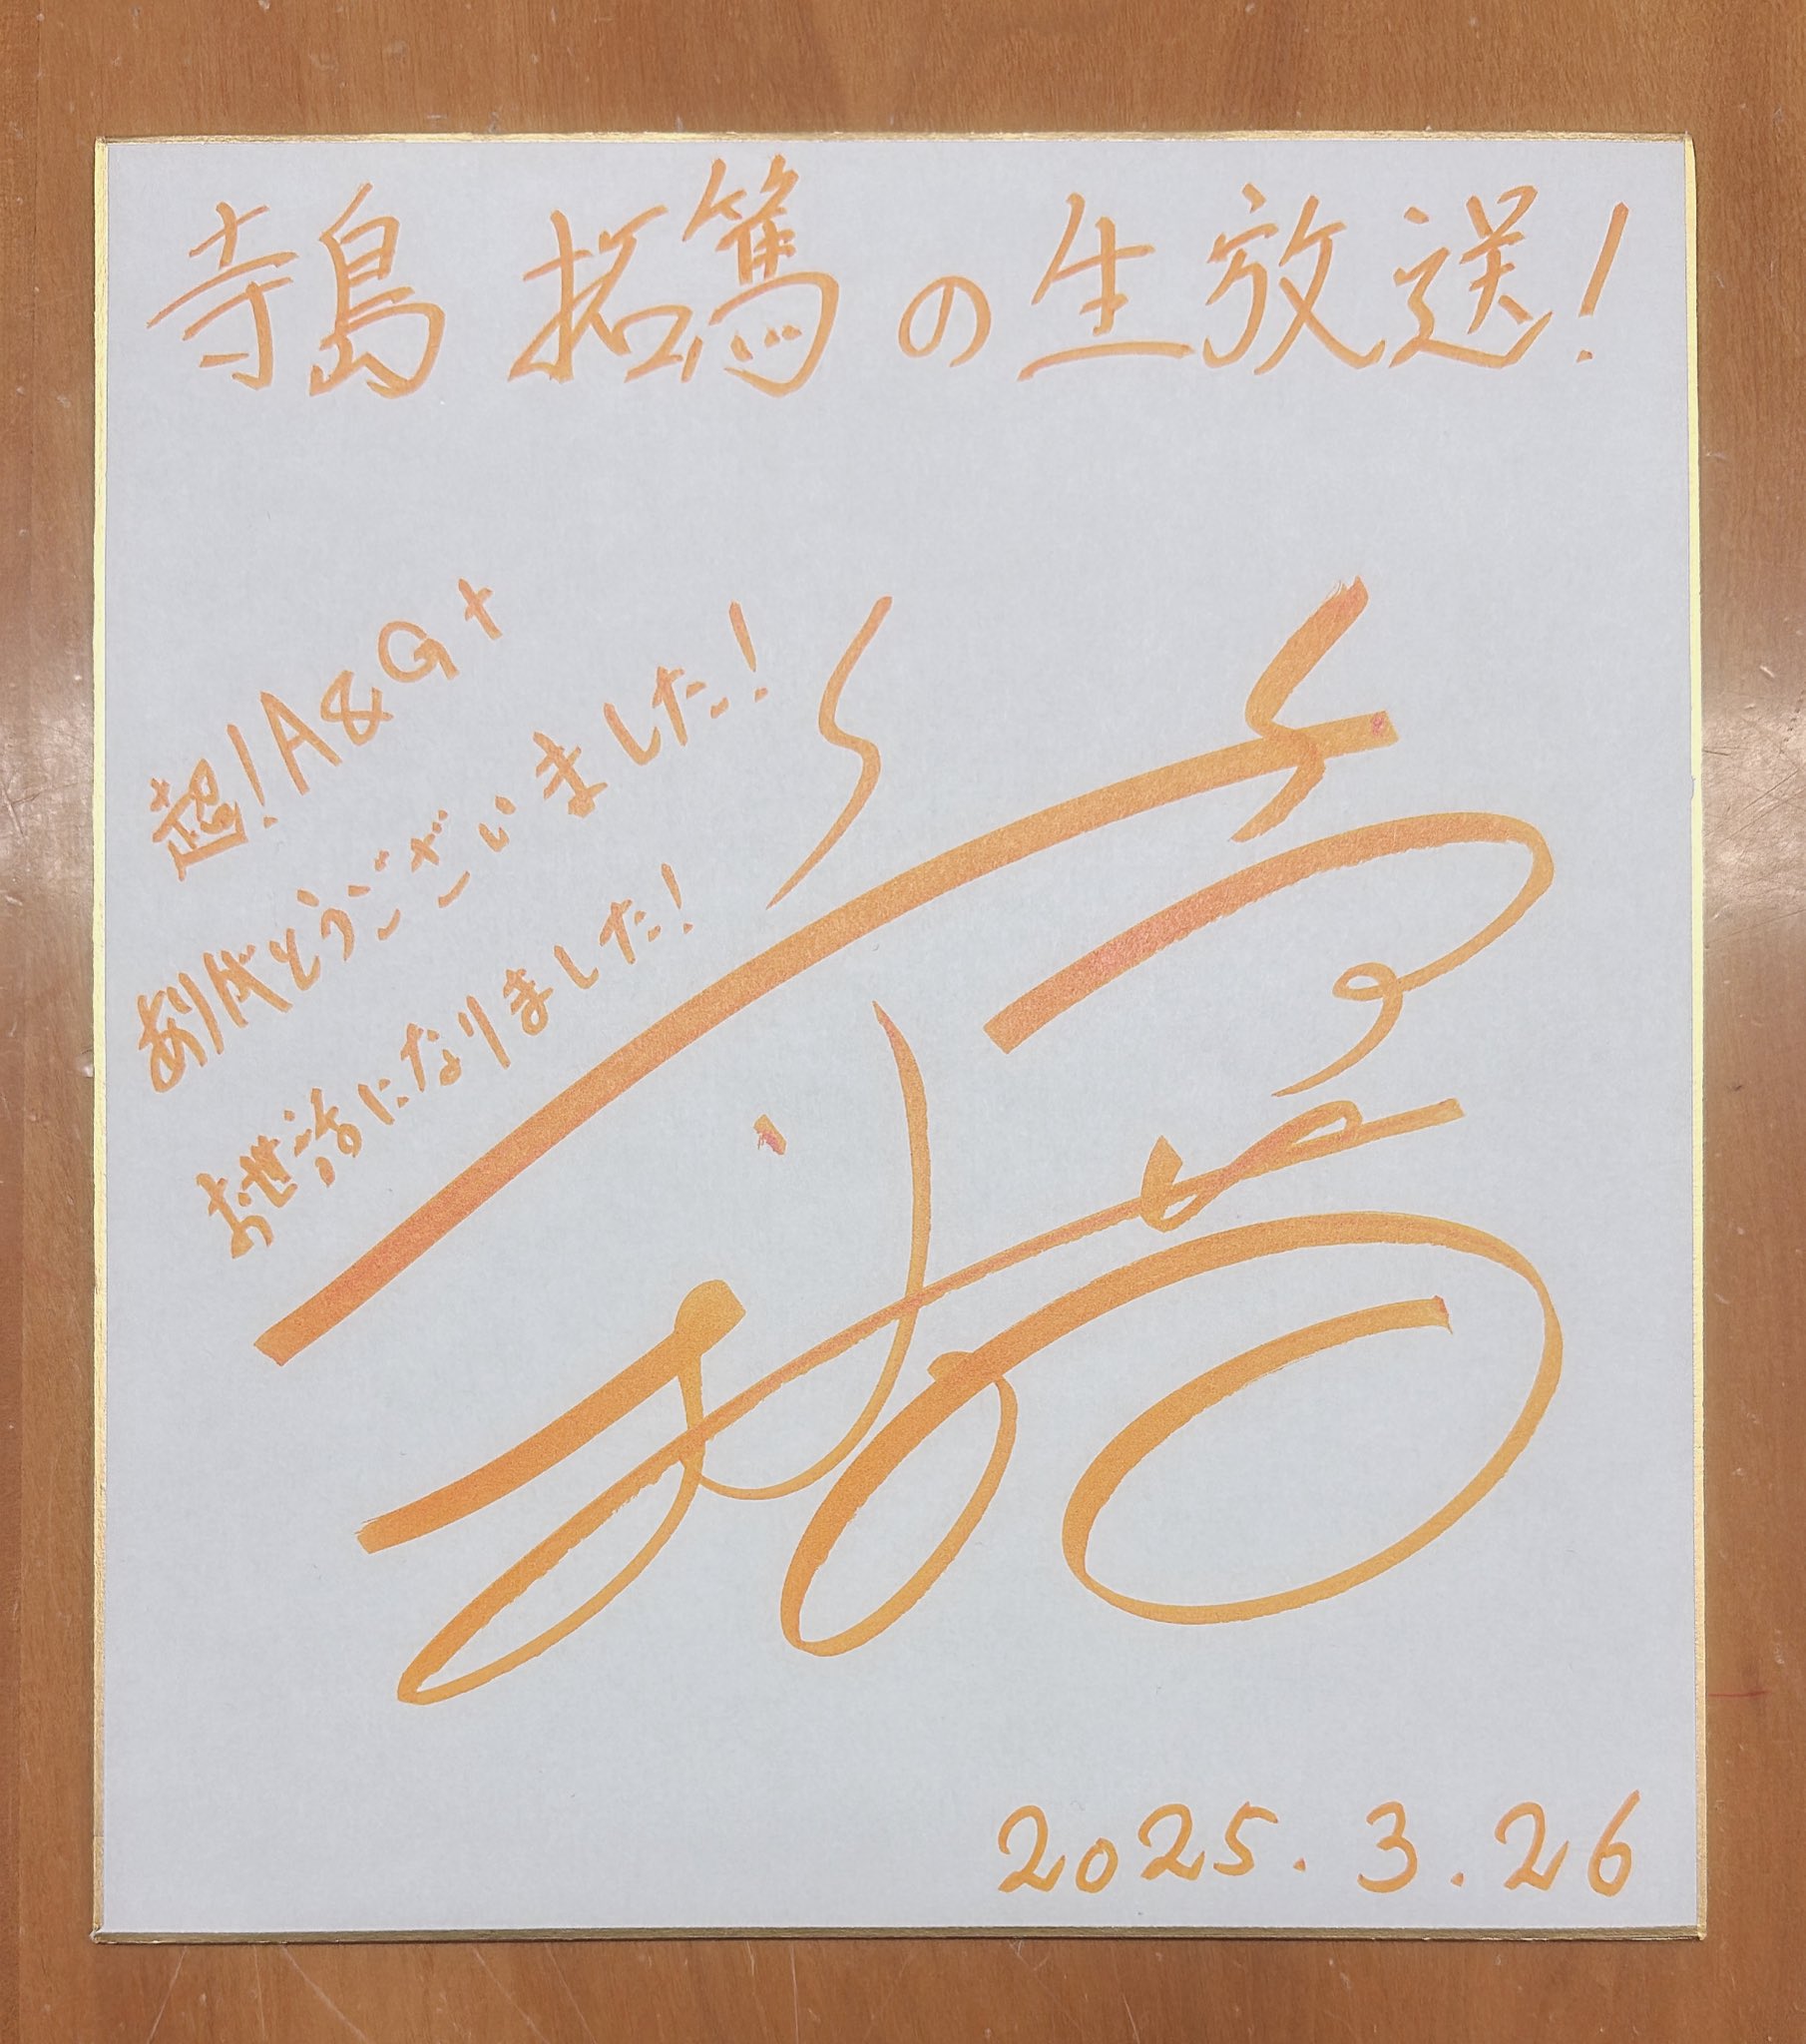 寺島拓篤の生放送!
超!A&G+
ありがとうございました!
お世話になりました!
2025.3.26